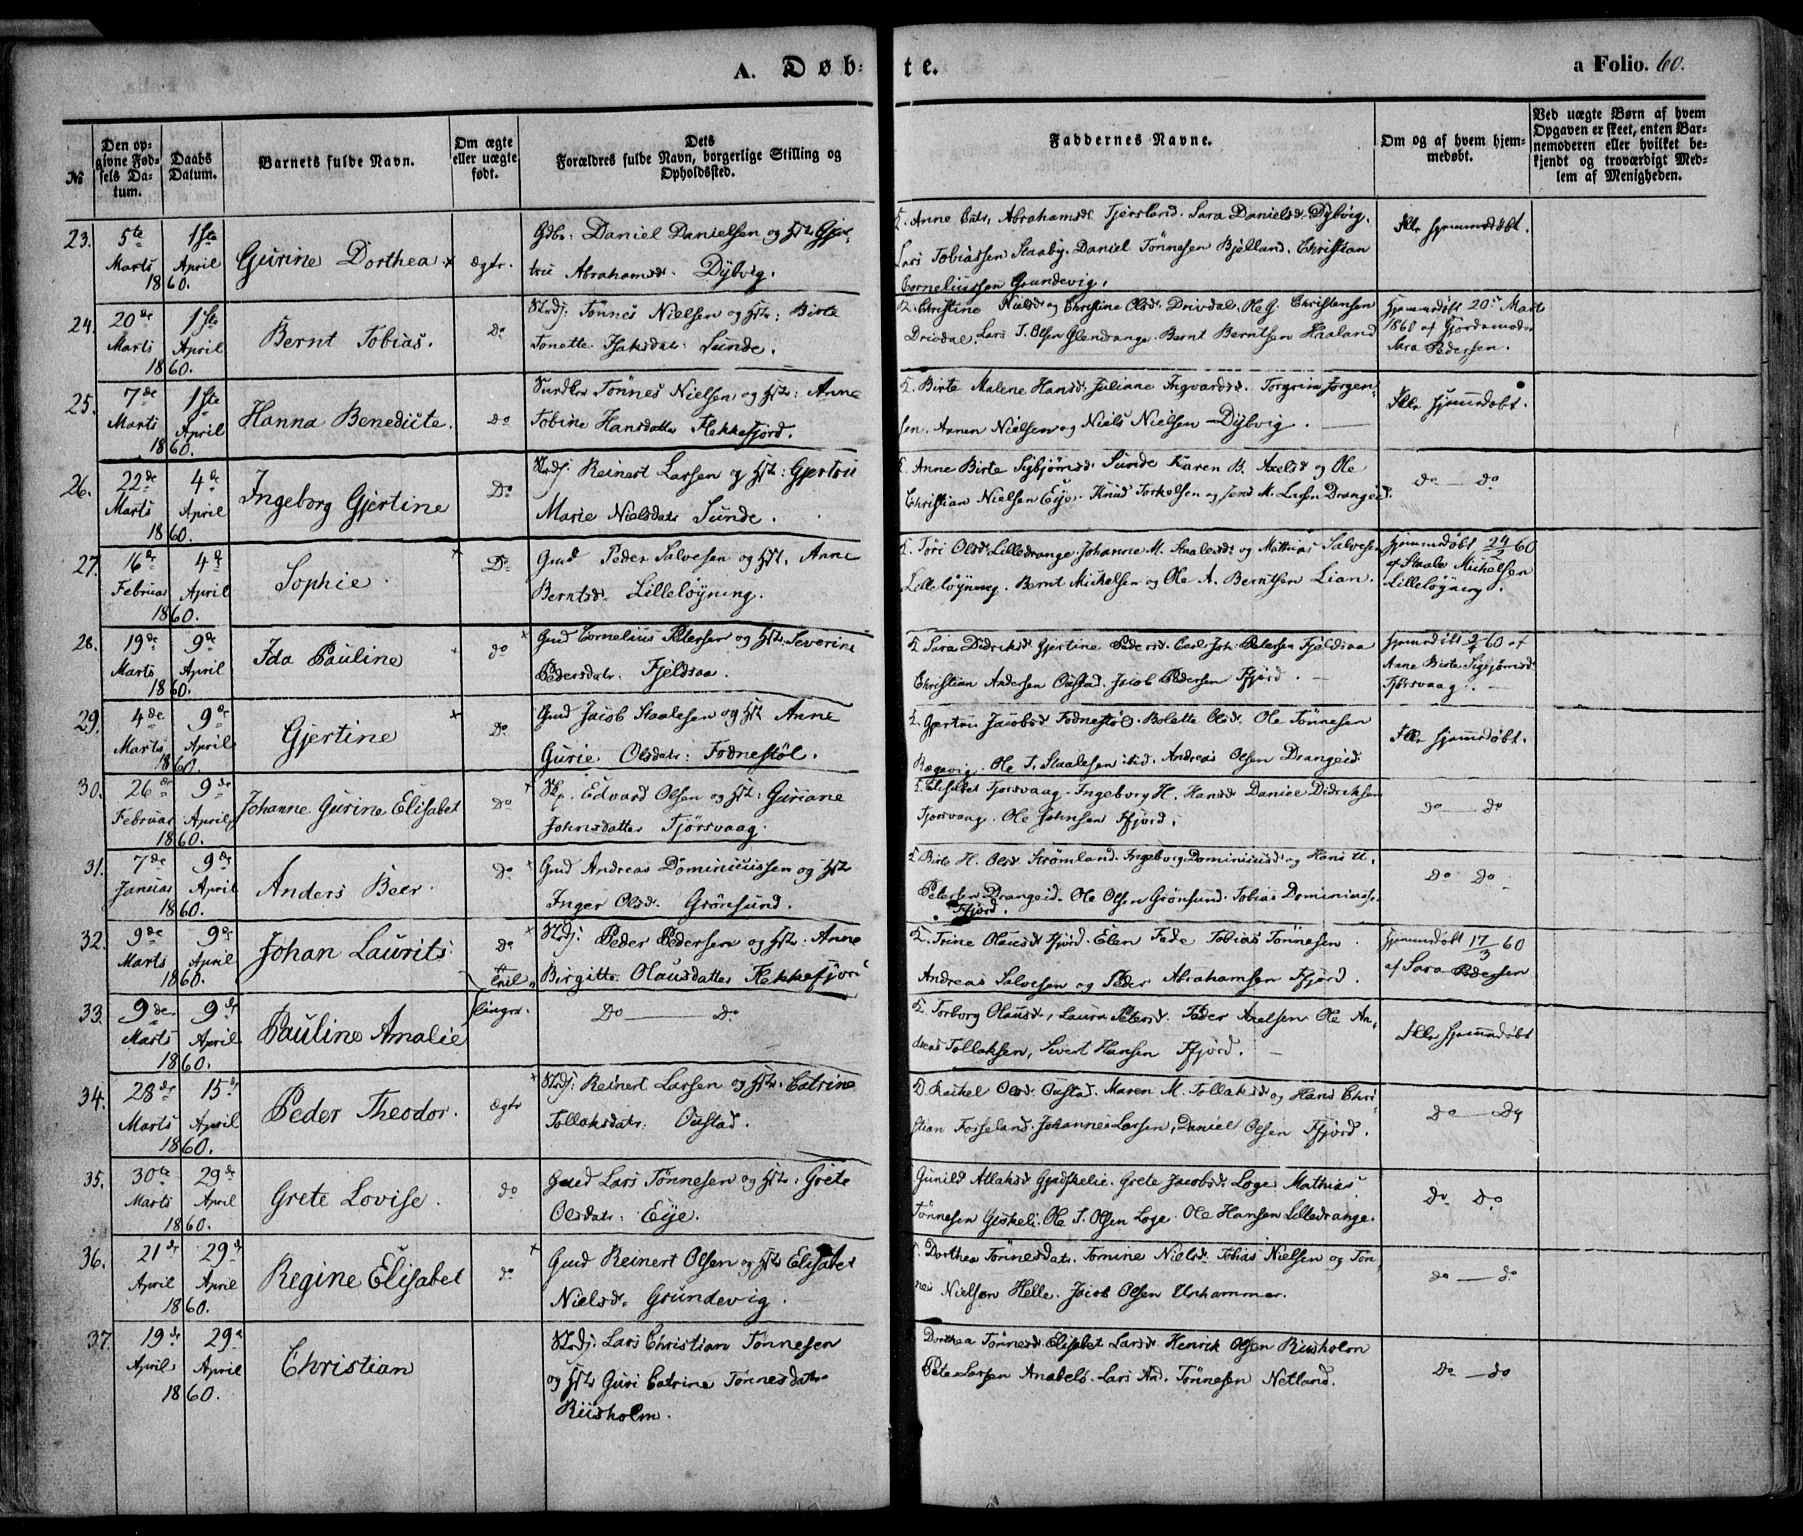 A. Døbte.
a Folio. 60.
№
Den opgivne Fødsels Datum.
Daabs Datum.
Barnets fulde Navn.
Om ægte eller uægte født.
Dets Forældres fulde Navn, borgerlige Stilling og Opholdssted.
Faddernes Navne.
Om og af hvem hjemmedøbt.
Ved uægte Børn af hvem Opgaven er skeet, enten Barnemoderen eller hvilket bekjendt og troværdigt Medlem af Menigheden.
23. 5te Marts 1ste April 1860. Gurine Dorthea ægte.
Gdbr: Daniel Danielsen og Hst: Gjer-
tru Abrahamsd. Dÿbvig.
Anne Catr. Abrahamsd. Tjersland. Sara Danielsd. Dÿbvig.
Lars Tobiassen Staaby. Daniel Tønnesen Bjelland. Christian
Corneliussen Grundevig.
Ikke hjemmedøbt.
24. 20de Marts 1ste April 1860. Bernt Tobias. Do
Strdsj: Tønnes Nielsen og Hst: Birte
Tonette Isaksdatr. Sunde.
Christine Nielsd og Christine Olsd. Drivdal. Ole G. Christensen
Drivdal. Lars T. Olsen Glendrange. Bernt Berntsen Haaland
Hjemmedøbt 20de Marts
1860 af Gjordemoder
Sara Pedersen.
25. 7de Marts 1ste April 1860. Hanna Bendicte. Do
Tønnes Nielsen og Hst: Anne
Tobine Hansdatter Flekkefjord.
Birte Malene Hansd. Juliane Ingvardsd. Torgrim Jørgen-
sen. Aanen Nielsen og Niels Nielsen Dÿbvig.
Ikke hjemmedøbt.
26. 22de Marts 4de April 1860. Ingeborg Gjertine Do
Strdsj: Reinert Larsen og Hst: Gjertru
Marie Nielsdatr Sunde.
Anne Birte Sigbjørnsd. Sunde Karen B. Axelsd og Ole
Christian Nielsen Eÿe. Knud Torkelsen og Jens M. Larsen Drangeid.
Do — Do
27. 16de Februar 4de April 1860. Sophie. Do
Gmd Peder Salvesen og Hst. Anne
Berntsd. Lilleløÿning.
Tøri Olsd Lilledrange. Johanne M. Staalesd. og Mathias Salvesen
Lilleløÿning. Bernt Mickelsen og Ole A. Berntsen Lian.
Hjemmedøbt 24/2 60
af Staale Michelsen
Lilleløÿning.
28. 19de Marts 9de April 1860. Ida Pauline do
Gmd Cornelius Petersen og Hst. Severine
Pedersdatr. Fjeldsaa.
Sara Didriksd Gjertine Pedersd. Carl Joh. Petersen Fjeldsaa
Christian Andersen Oustad. Jacob Pedersen Ffjord.
Hjemmedøbt 2/4 60 af
Anne Birte Sigbjørnsd
Tjørsvaag.
29. 4de Marts 9de April 1860. Gjertine Do
Gmd Jacob Staalesen og Hst Anne
Gurie Olsdatr: Fodnestøl.
Gjertru Jacobsd Fodnestøl. Bolette Olsd. Ole Tønnesen
Rægevig. Ole T. Staalesen ibid. Andreas Olsen Drangeid.
Ikke hjemmedøbt.
30. 26de Februar 9de April 1860. Johanne Gurine Elisabet Do
Edvard Olsen og Hst: Guriane
Johnsdatter Tjörsvaag.
Elisabet Tjorsvaag. Ingeborg H. Hansd Daniel Didriksen
Tjorsvaag. Ole Johnsen Ffjord.
do — do
31. 7de Januar 9de April 1860. Anders Beer. Do
Gmd Andreas Dominicussen og Hst
Inger Olsd. Grönsund.
Birte H. Olsd. Strømland. Ingeborg Dominicusd og Hans
Petersen Drangeid. Ole Olsen Grønsund. Tobias Dominicuss-
Ffjord.
Do Do
32. 9de Marts 9de April 1860. Johan Laurits Do
Strdsj: Peder Pedersen og Hst: Anne
Birgitte Olausdatter Flekkefjord
Trine Olausd Ffjord. Elen Fede Tobias Tønnesen
Andreas Salvesen og Peder Abrahamsen Ffjord.
Hjemmedøbt 17/3 60
af Sara Pedersen
33. 9de Marts 9de April 1860. Pauline Amalie
Tvillinger.
Do — Do
Torborg Olausd, Laura Petersd. Peder Axelsen Ole An-
dreas Tollaksen, Sivert Hansen Ffjord.
Ikke hjemmedøbt
34. 28de Marts 15de April 1860. Peder Theodor. ægte
Strdsj: Reinert Larsen og Hst. Catrine
Tollaksdatr. Oustad.
Rachel Olsd. Oustad. Maren M. Tollaksd og Hans Chri-
stian Fosseland. Johannes Larsen, Daniel Olsen Ffjord.
Do — Do
35. 30te Marts 29de April 1860. Grete Lovise. do
Gmd Lars Tönnesen og Hst: Grete
Olsdatr. Eÿe.
Gunild Atlaksd Gjedskelie. Grete Jacobsd. Loge Mathias
Tønnesen Giskeli. Ole S. Olsen Loge. Ole Hansen Lilledrange.
Do Do
36. 21de April 29de April 1860. Regine Elisabet do
Gmd Reinert Olsen og Hst Elisabet
Nielsd. Grundevig.
Dorthea Tønnesdatr. Tomine Nielsd. Tobias Nielsen og Tøn-
nes Nielsen Helle. Jacob Olsen Urhammer.
do — do
37. 19de April 29de April 1860. Christian
Strdsj: Lars Christian Tønnesen
og Hst Guri Catrine Tønnesdatr
Riisholm.
Dorthea Tønnesd Elisabet Larsd Henrik Olsen Riisholm
Peter Larsen Anabel. Lars And. Tønnesen Netland.
Do — do